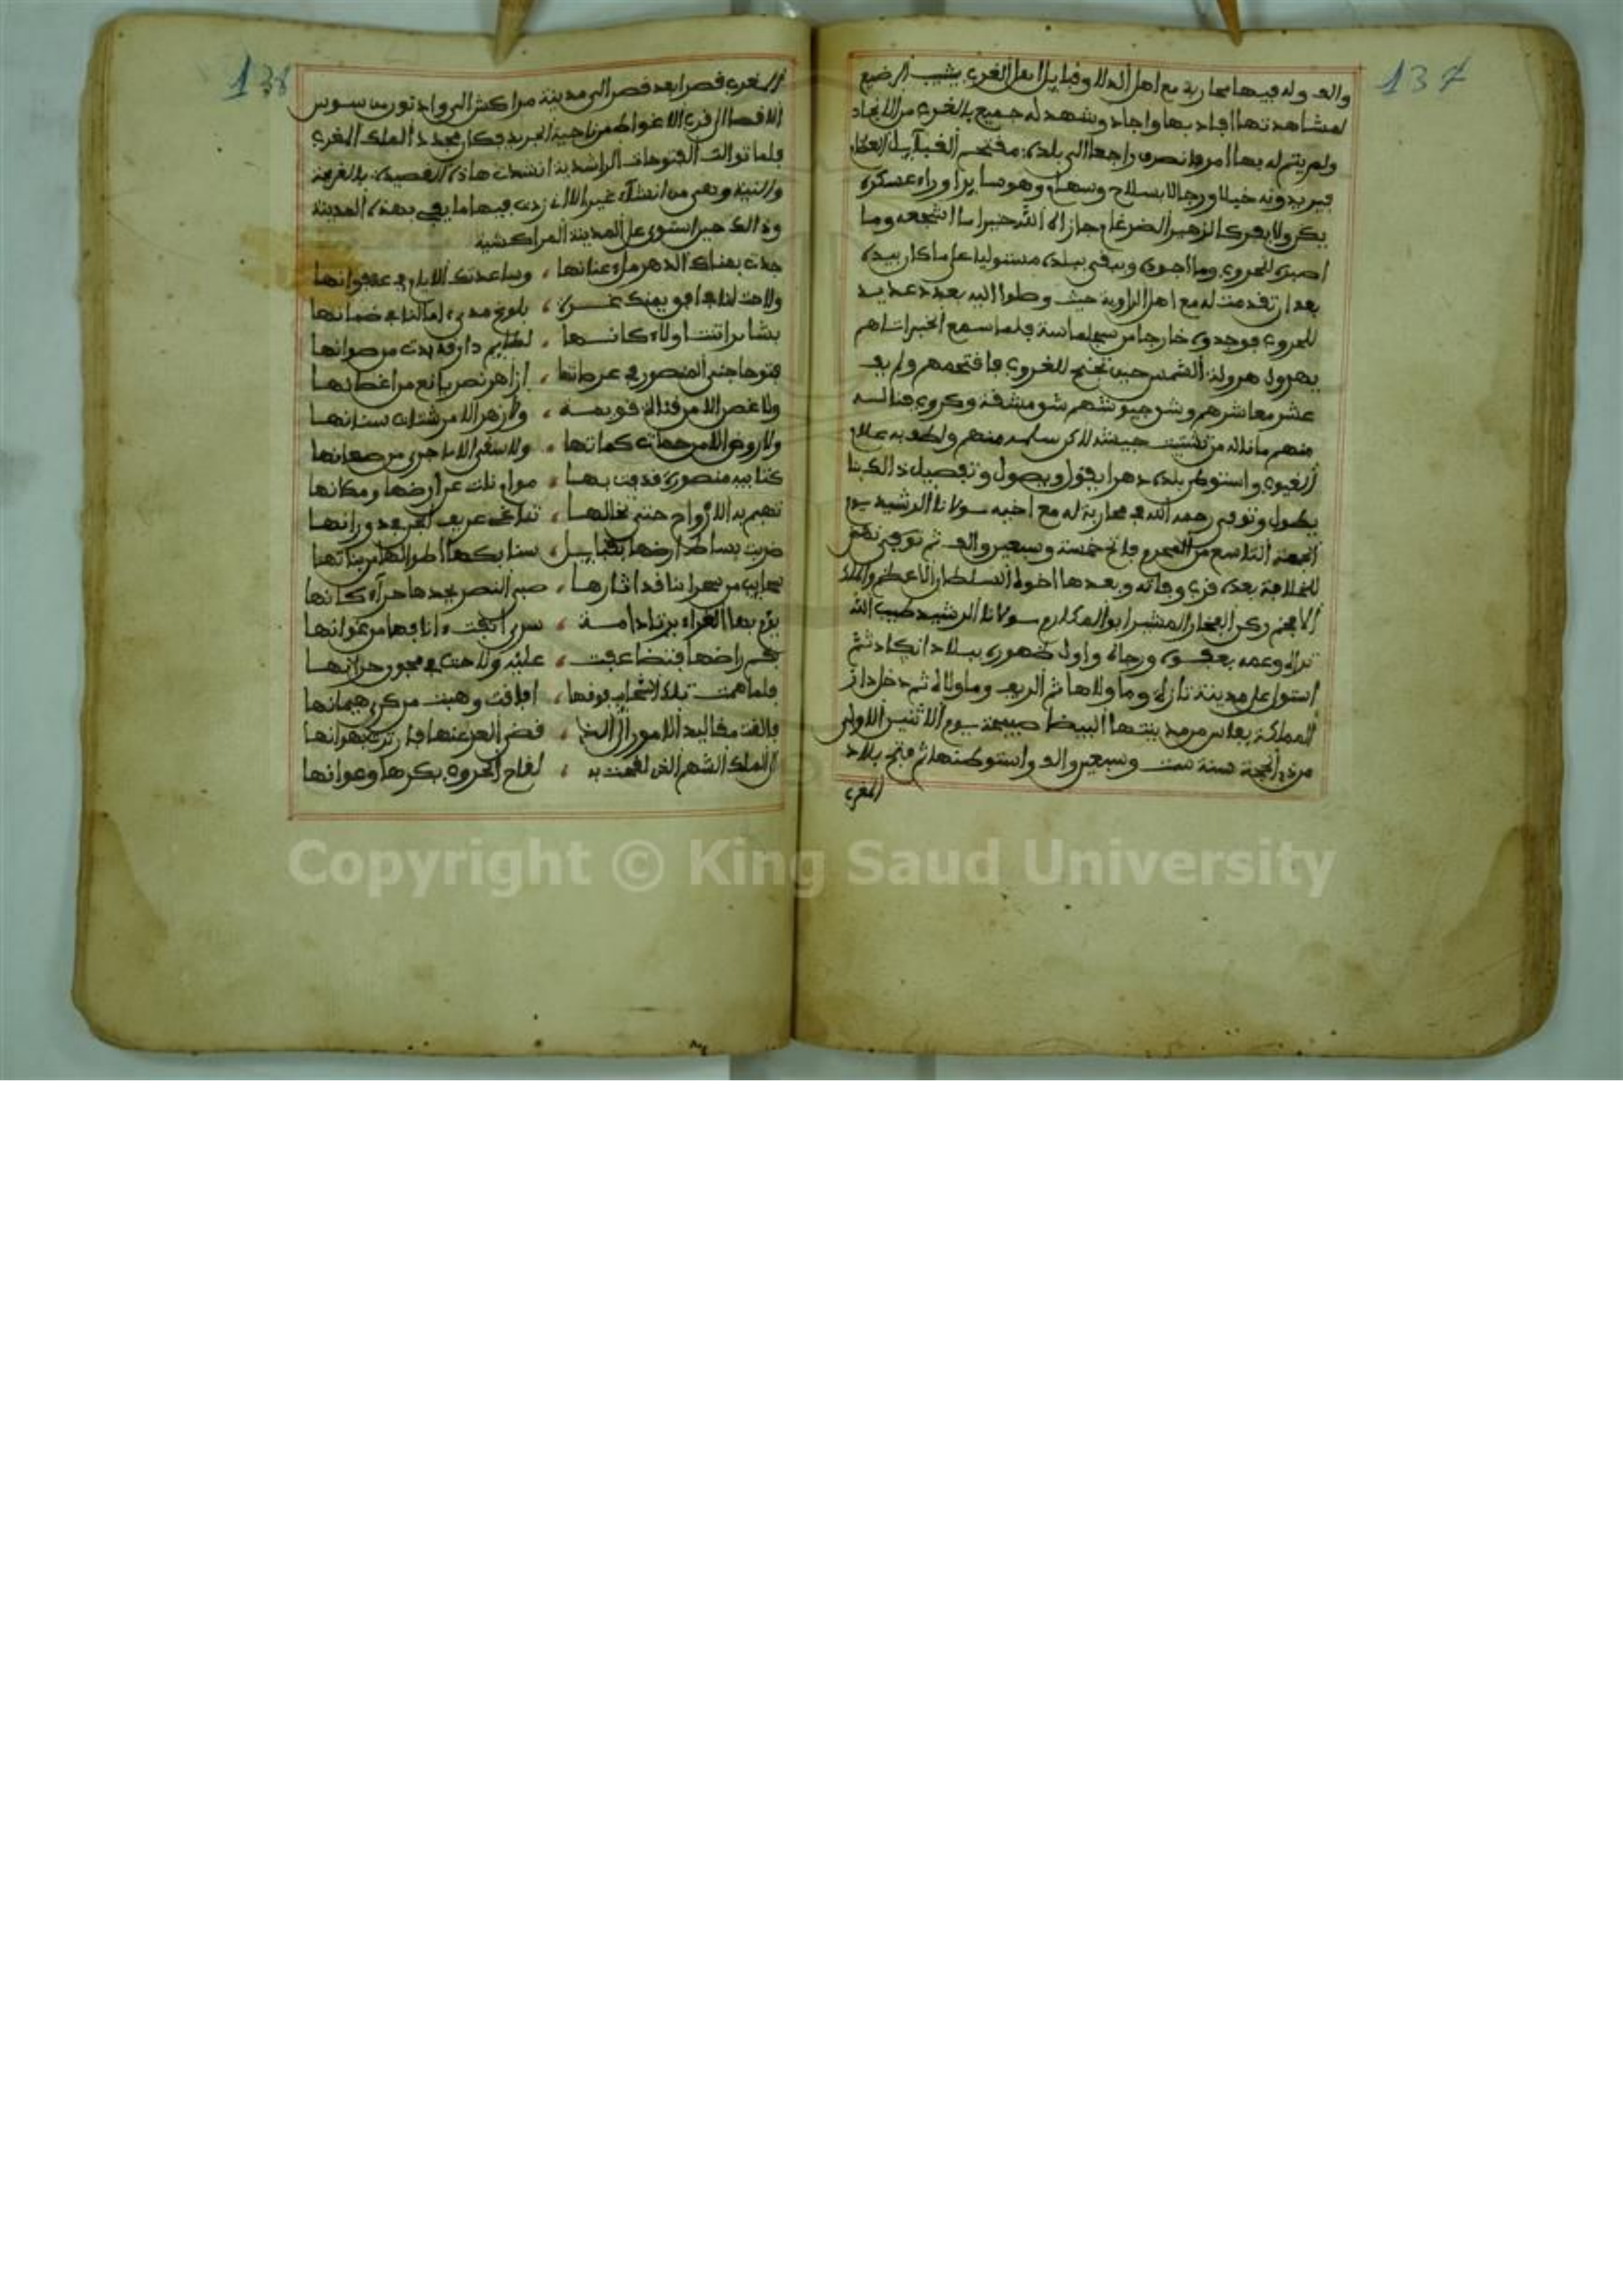 137
والف وله فيها محاربة مع اهل الدلا وقبايل اهل الغرب يشيب الرضيع
لمشاهدتها اجاد بها واجاد وشهد له جميع بالغرب من الانجاد
ولم يتم له بها امر وانصرف راجعا الى بلده مقتحم القبايل العظام
فيريدونه خيلا ورجالا بسلاح وسهام وهو سايرا وراء عسكره
يكر ولا يفر كالزهير الضرغام جازاه الله خيرا ما اشجعه وما
اصبره للحروب وما اجوده وبقي ببلده مستوليا على ماكان بيده
بعد ان تقدمت له مع اهل الزاوية حيث وصلوا اليه بعدد عديد
للحروب فوجدوه خارجا من سجلماسة فلما سمع الخبر اتاهم
يهرول هرولة الشمس حين تجنح للغروب فاقتحمهم ولم يف
عشر معاشرهم وشوجيوشهم شو مشقة وكروب فنالـه
منهم ما ناله من تشتيت جيشه لاكن سلمه منهم ولطف به علام
الغيوب واستوطن بلده دهرا يقول ويصول وتفصيل ذالك بنا
يطول وتوفي رحمه الله في محاربة له مع اخيه مولانا الرشيد يوم
الجمعة التاسع من المحرم فاتح خمسة وسبعين والف ثم توفي نهض
للخلافة بعده قرب وفاته وبعدها اخوه السلطان الاعظم والملك
الافخم ركن الفخار المشير ابو المكارم مولانا الرشيد طيب الله
ثراه وعمه بعفوه ورجاه واول ظهوره ببلاد انكاد ثم
استوا على مدينة تازة وما والاها ثم الريف وما والاه ثم دخل دار
المملكة بفاس من مدينتها البيضا صبيحة يوم الاثنين الاولى
من ذي الحجة سنة ست وسبعين والف واستوطنها ثم فتح بلاد
المغرب
138
المغرب قصرا بعد قصر الى مدينة مراكش الى وادنون من سوس
الاقصا الى قرب الاغواط من ناحية الجريد فكان مجدد الملك المغرب
فلما توالت الفتوحات الراشدية انشدت هاذه القصيدة بالفرجة
والنية وهي من انشاء غير الا ان زدت فيها ما يفي بهذه المدينة
وذالك حين استوى على المدينة المراكشية
جدت بهناك الدهر ملء عنانها ، وساعدتك الايام في عنفوانها
ولاحت لنا في افق يمنك غـرة ، بلوغ مدى امالنا في ضمانها
بشاير اتت اولاه كانـها ، لطايم دارة بدت من صوانها
فتوحا جنى المنصور في عرصاتها ، ازاهر نصر يانع من اغصانها
ولا غصن الا من قناة قويمة ، ولا زهر الا من شتات سنانها
ولا روض الا من حمات كماتها ، ولا سقي الا ما جرى من صعانها
كتايب منصور قد بت بها ، مواثلت عن ارضها ومكانها
تهيم به الارواح حتى تخالها ، تناغى عريف الجر في دورانها
ضربت بساط ارضها بقبايل ، سنابكها اطوالها من بناتها
سحايب من صحراينا قد اثارها ، صبى النصر يحدها حرءاه كانها
يؤم بها الغراء يرتاد امـة ،
بحم راضها فتضاعفت ، عليه ولاحت في محور حرانها
فلما همت تلك السحايب فوقها ، افاقت وهبت من كرى هيمانها
فالقت مقاليد الامور الى الذي ، قضى العز عنها
الى الملك الشهم الذي لقحت به ، لقاح الحروب بكرها وعوانها
Copyright © King Saud University